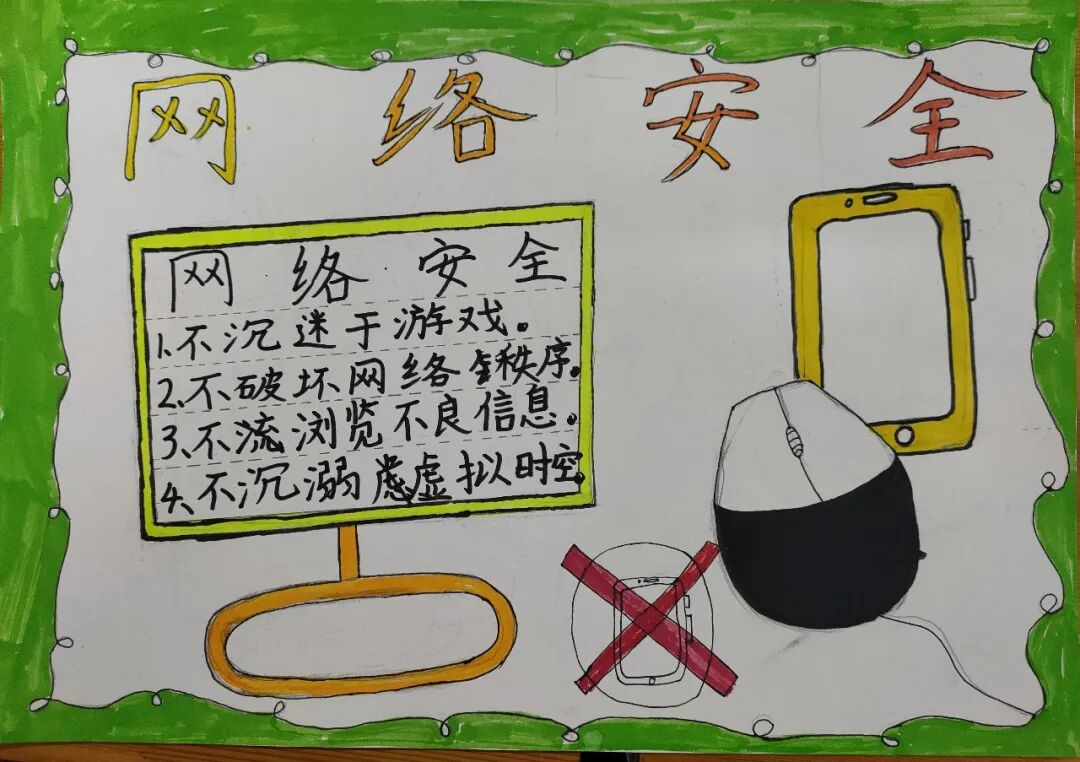 网络安全
网络安全
1.不沉迷于游戏。
2.不破坏网络秩序。
3.不流浏览不良信息。
4.不沉溺虚拟时空。